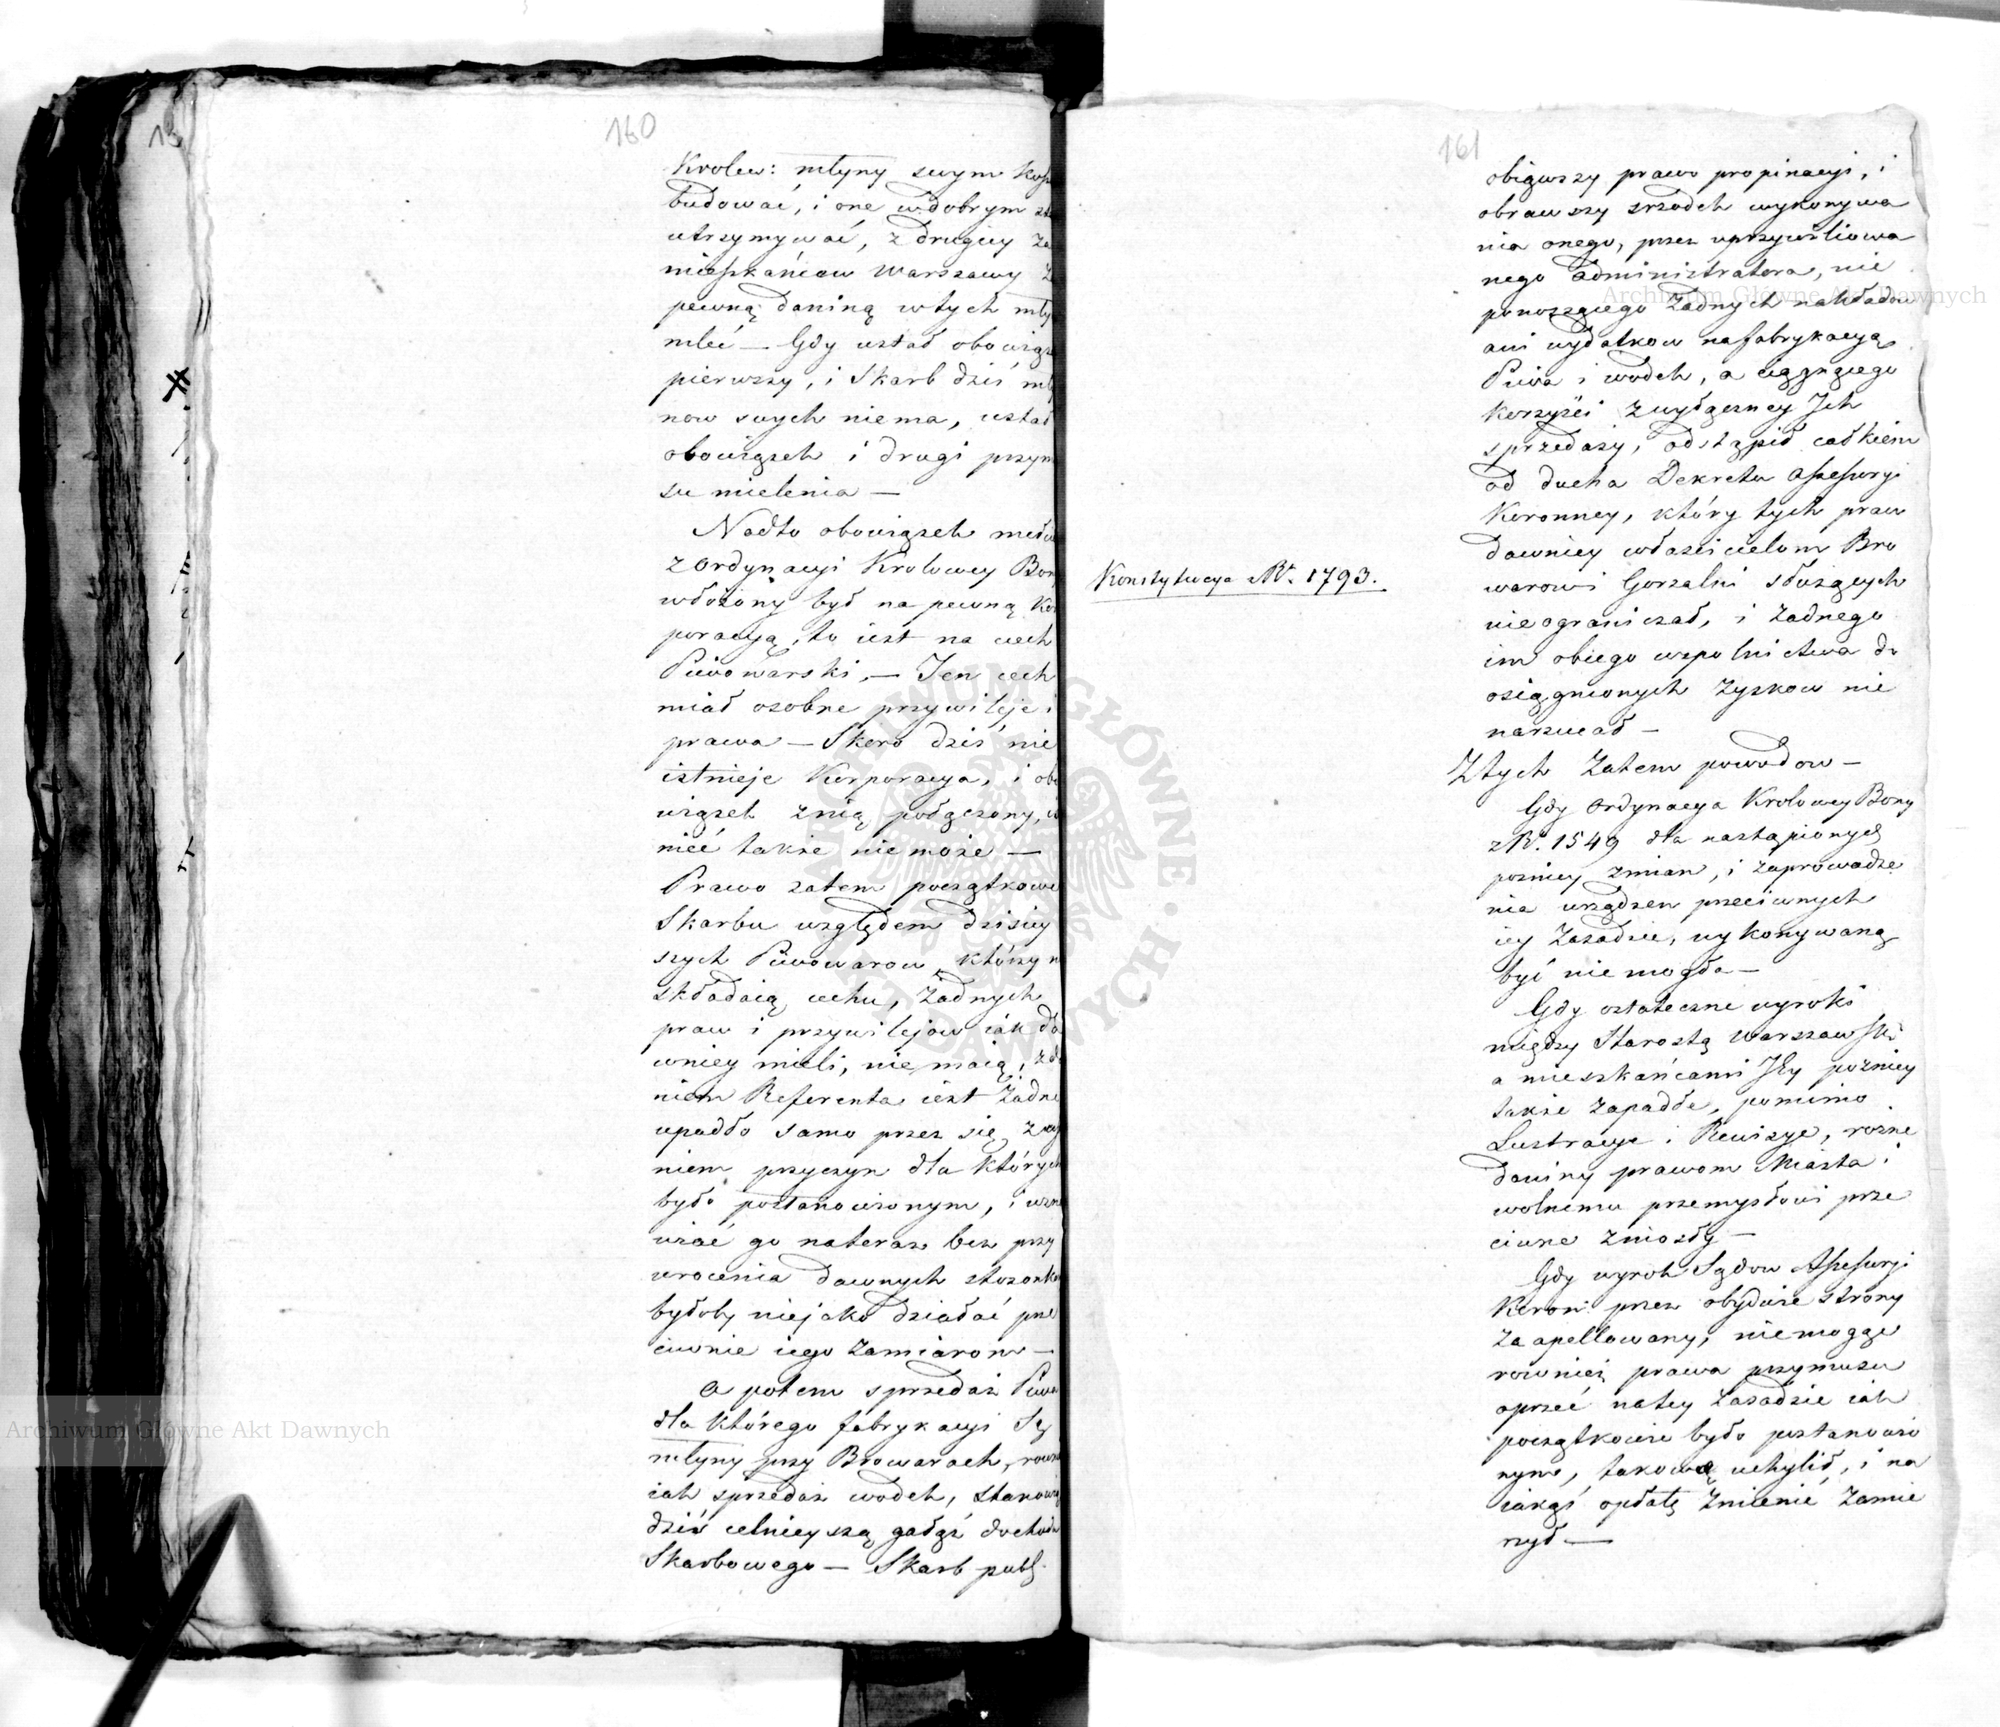 160
Krolew: młyny swym kosz
budować, i one w dobrym sta
utrzymywać, z drugiey za
mieszkańcow Warszawy
pewną daniną w tych mły
mleć — Gdy ustał obowiąz
pierwszy, i Skarb dziś mły
now swych niema, ustał
obowiązek i drugi przym
su mielenia —
Nadto obowiązek mełcia
z Ordynacyi Krolowey Bon
włożony był na pewną Kor
poracyą, to iest na cech
Piwowarski, — Ten cech
miał osobne przywileje i
prawa — Skoro dziś nie
istnieje Korporacya, i obo
wiązek z nią połączony, i
nieć także nie może —
Prawo zatem początkowe
Skarbu względem dzisiey
szych Piwowarow którzy n
składaią cechu, żadnych
praw i przywilejow iak da
wniey mieli, nie maią, zda
niem Referenta iest żadne
upadło samo przez się z
niem przyczyn dla których
było postanowionym, i wzna
wiać go na teraz bez przy
wrocenia dawnych stosonko
byłoby niejako działać prze
ciwnie iego zamiarom —
A potem sprzedaż Piwa
dla którego fabrykacyi Są
młyny przy Browarach, rowni
iak sprzedaż wodek, stanowi
dziś celnieyszą gałąź dochodu
Skarbowego — Skarb publ.
161
obiąwszy prawo propinacyi, i
obrawszy srzodek wykonywa
nia onego, przez uprzywiliowa
nego administratora, nie
ponoszącego żadnych nakładow
ani wydatkow na fabrykacyą
Piwa i wodek, a ciągnącego
korzyści z wyłączney Ich
sprzedaży, odstąpił całkiem
od ducha Dekretu Assessoryi
Koronney, który tych praw
dawniey właścicielom Bro
warow i Gorzalni służących
nie ograniczał, i żadnego
im obcego wspolnictwa do
osiągnionych zyskow nie
narzucał —
Konstytucya R. 1793.
Z tych zatem powodow —
Gdy Ordynacya Krolowey Bony
z R. 1549 dla nastąpionych
pozniey zmian, i zaprowadze
nia urządzen przeciwnych
iey zasadzie, wykonywaną
być nie mogła —
Gdy ostateczne wyroki
między Starostą Warszawski
a mieszkańcami Jey pozniey
także zapadłe, pomimo
Lustracye i Rewizye, rożne
daniny prawom Miasta i
wolnemu przemysłowi prze
ciwne zniosły —
Gdy wyrok Sądow Assessoryi
Koron: przez obydwie strony
zaapellowany, niemogąc
rownież prawa przymusu
oprzeć na tey zasadzie iak
początkowie było postanowio
nym, takową uchylił, i na
iakąś opłatę zmienić zamie
rzył —
Archiwum Główne Akt Dawnych
Archiwum Główne Akt Dawnych
ARCHIWUM GŁÓWNE AKT DAWNYCH